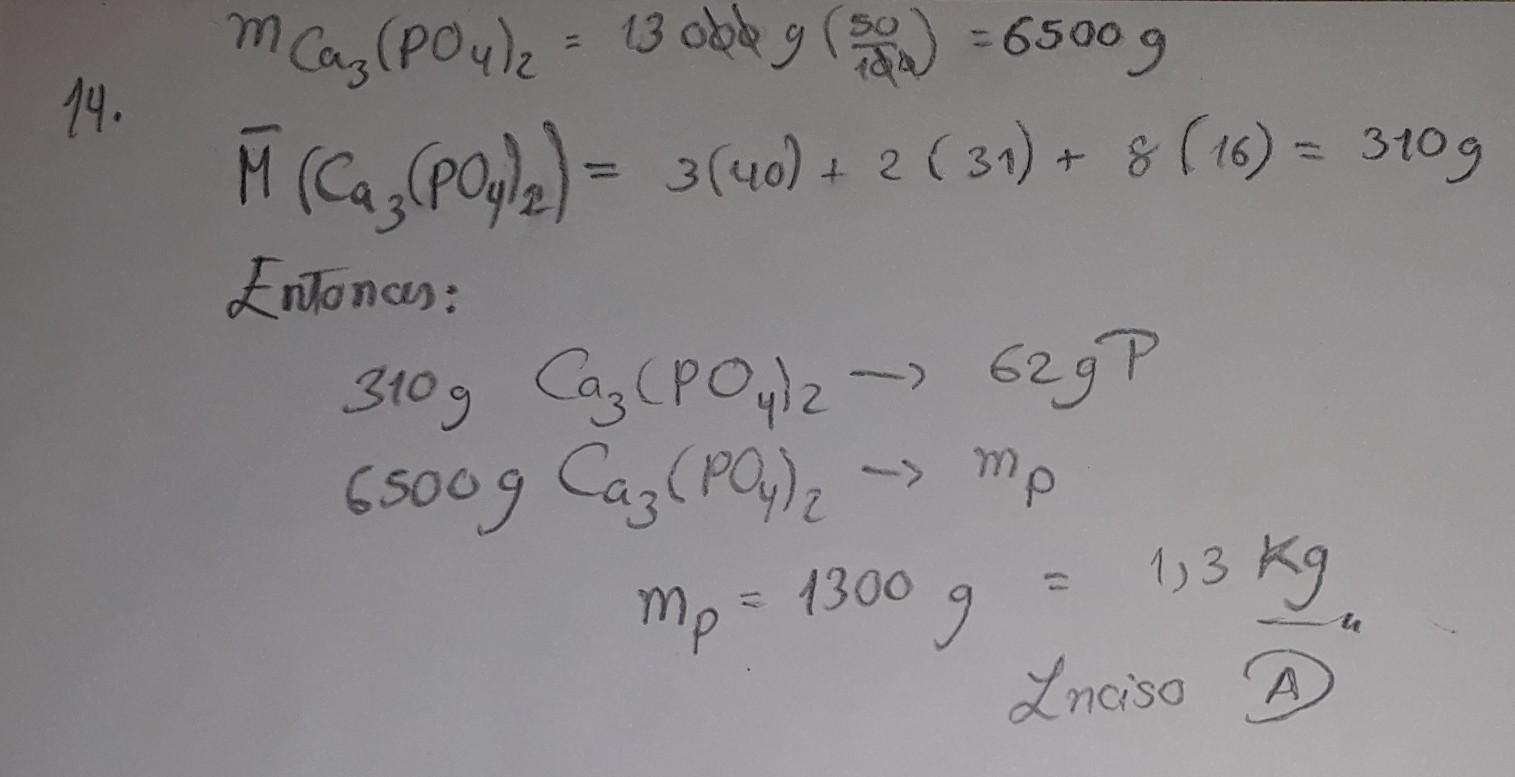 m Ca₃(PO₄)₂ = 13 000 g (50/100) = 6500 g
14.
M̄ (Ca₃(PO₄)₂) = 3(40) + 2(31) + 8(16) = 310g
Entonces:
310g Ca₃(PO₄)₂ → 62g P
6500g Ca₃(PO₄)₂ → mp
mp = 1300 g = 1,3 Kg
Inciso A